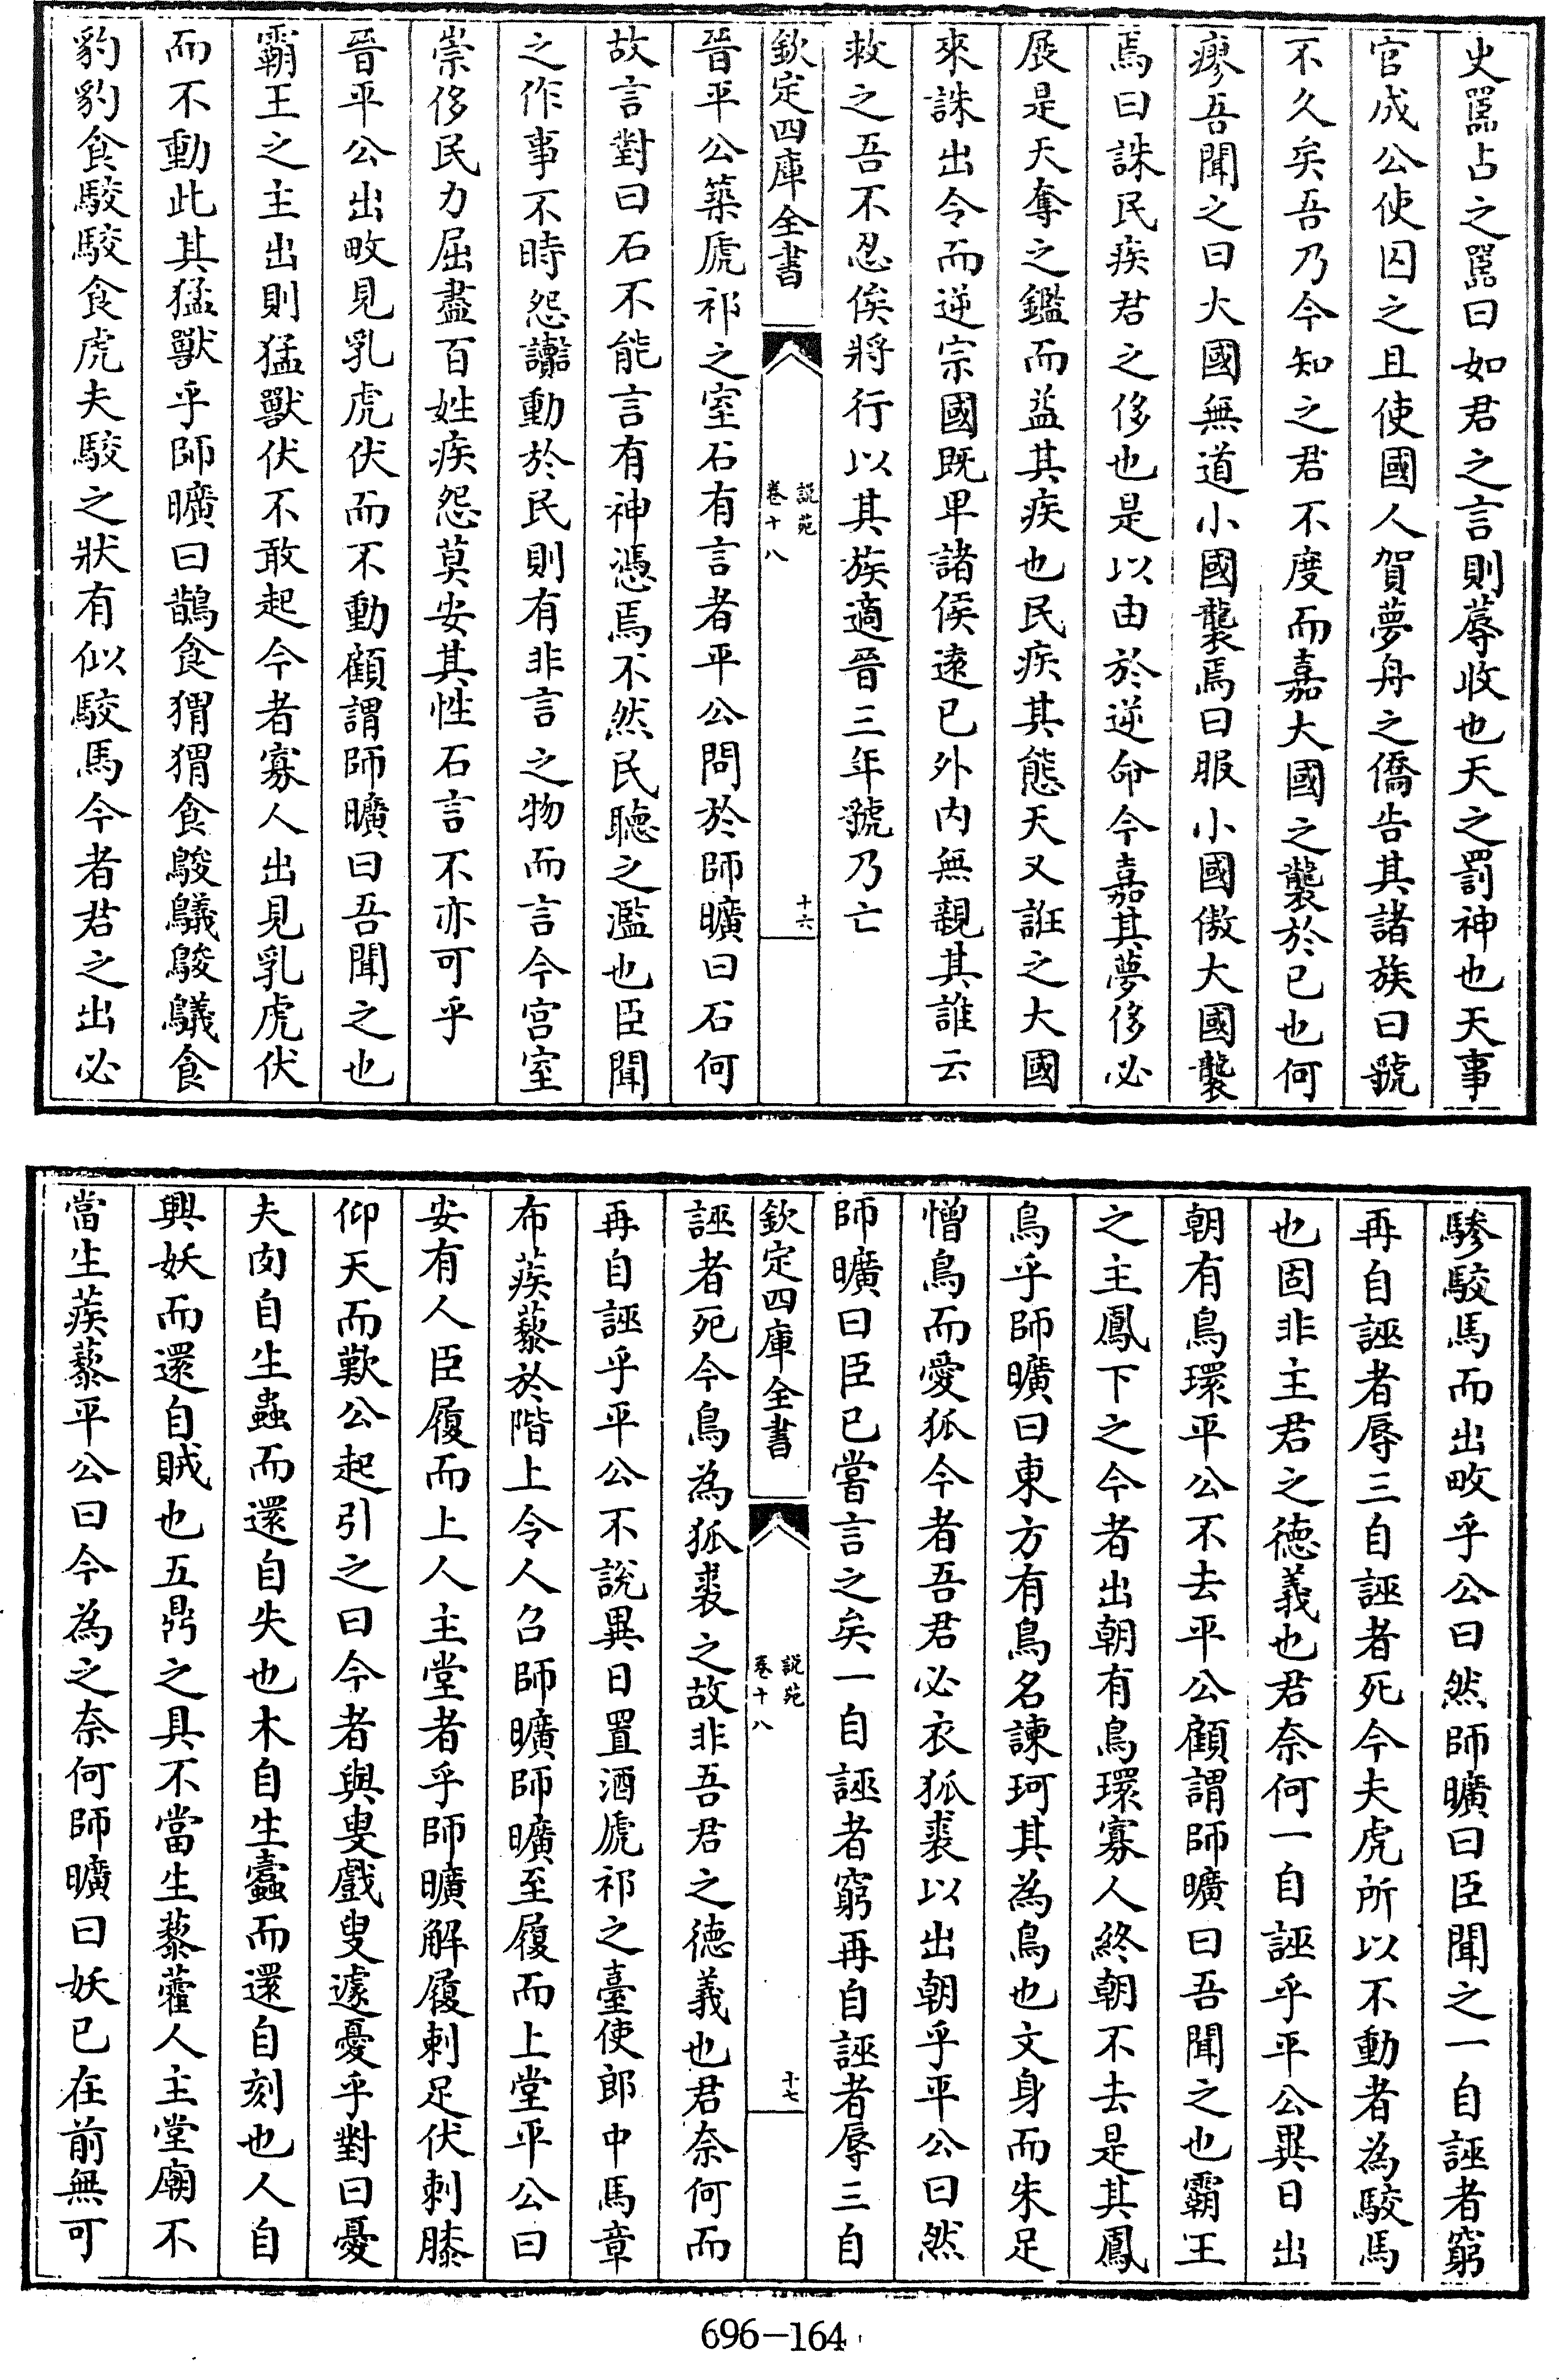 史嚚占之嚚曰如君之言則蓐收也天之罰神也天事
官成公使囚之且使國人賀夢舟之僑告其諸族曰虢
不久矣吾乃今知之君不度而嘉大國之襲於已也何
瘳吾聞之曰大國無道小國襲焉曰服小國傲大國襲
焉曰誅民疾君之侈也是以由於逆命今嘉其夢侈必
展是天奪之鑑而益其疾也民疾其態天又誑之大國
來誅出令而逆宗國既卑諸侯遠已外内無親其誰云
救之吾不忍俟將行以其族適晉三年虢乃亡
欽定四庫全書
說苑
卷十八
十六
晉平公築虒祁之室石有言者平公問於師曠曰石何
故言對曰石不能言有神憑焉不然民聽之濫也臣聞
之作事不時怨讟動於民則有非言之物而言今宮室
崇侈民力屈盡百姓疾怨莫安其性石言不亦可乎
晉平公出畋見乳虎伏而不動顧謂師曠曰吾聞之也
霸王之主出則猛獸伏不敢起今者寡人出見乳虎伏
而不動此其猛獸乎師曠曰鵲食猬猬食鵔鸃鵔鸃食
豹豹食駮駮食虎夫駮之狀有似駮馬今者君之出必
驂駮馬而出畋乎公曰然師曠曰臣聞之一自誣者窮
再自誣者辱三自誣者死今夫虎所以不動者為駮馬
也固非主君之德義也君奈何一自誣乎平公異日出
朝有鳥環平公不去平公顧謂師曠曰吾聞之也霸王
之主鳳下之今者出朝有鳥環寡人終朝不去是其鳳
鳥乎師曠曰東方有鳥名諫珂其為鳥也文身而朱足
憎鳥而愛狐今者吾君必衣狐裘以出朝乎平公曰然
師曠曰臣已嘗言之矣一自誣者窮再自誣者辱三自
欽定四庫全書
說苑
卷十八
十七
誣者死今鳥為狐裘之故非吾君之德義也君奈何而
再自誣乎平公不說異日置酒虒祁之臺使郎中馬章
布蒺藜於階上令人召師曠師曠至履而上堂平公曰
安有人臣履而上人主堂者乎師曠解履刺足伏刺膝
仰天而歎公起引之曰今者與叟戲叟遽憂乎對曰憂
夫肉自生蟲而還自失也木自生蠹而還自刻也人自
興妖而還自賊也五鼎之具不當生藜藿人主堂廟不
當生蒺藜平公曰今為之奈何師曠曰妖已在前無可
696-164